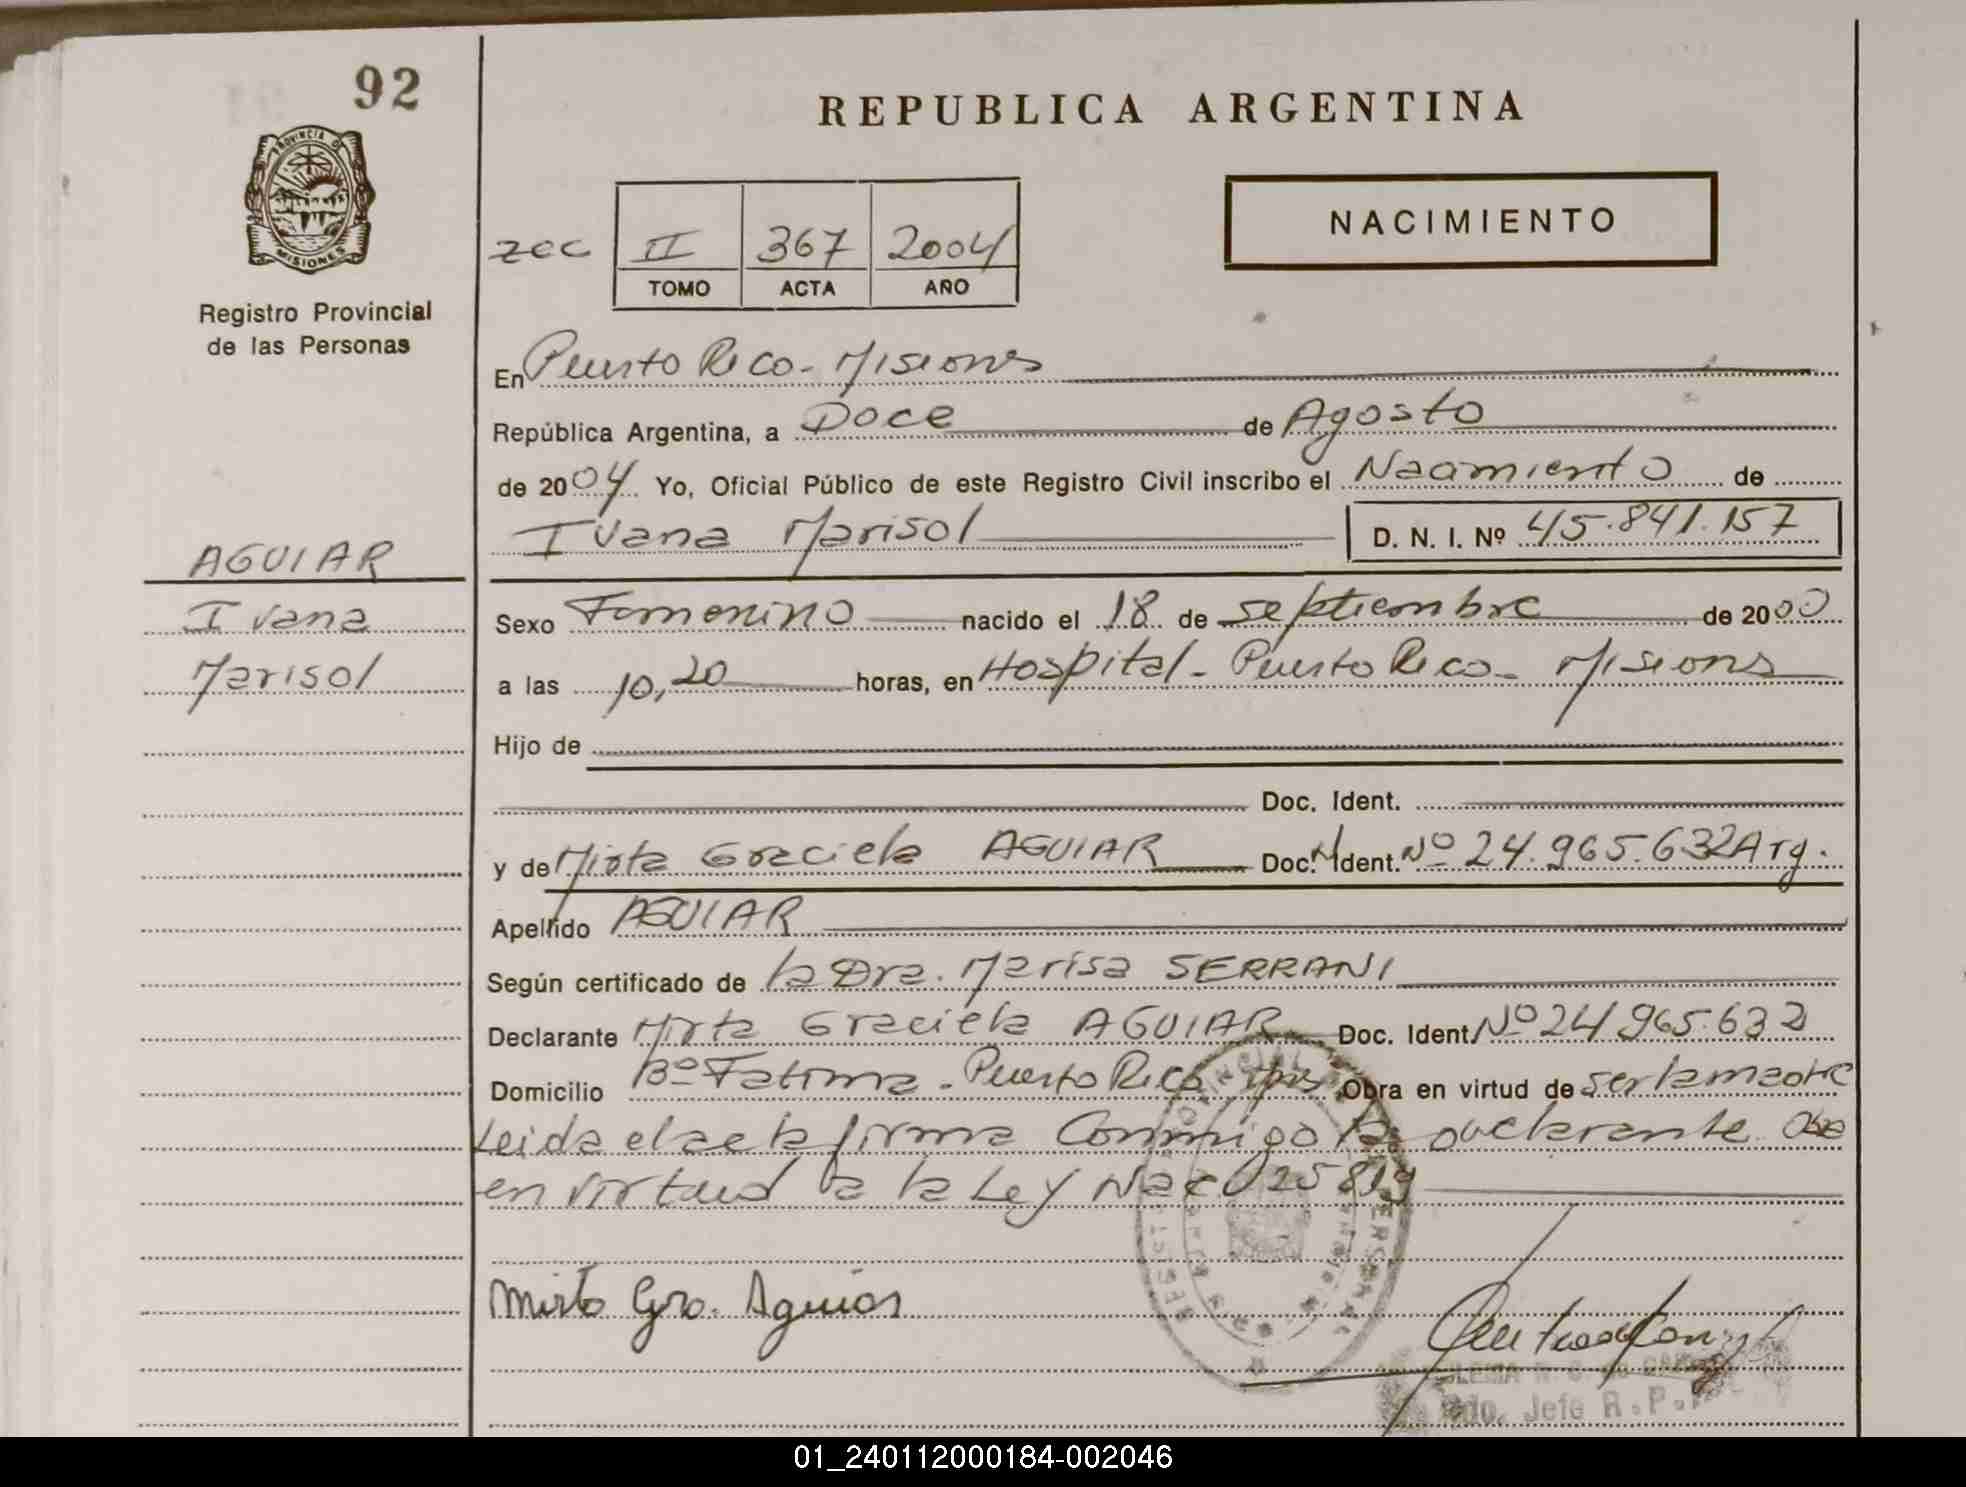 92
REPUBLICA ARGENTINA
PROVINCIA DE
MISIONES
Registro Provincial
de las Personas
NACIMIENTO
zec II 367 2004
TOMO ACTA AÑO
En Puerto Rico - Misiones
República Argentina, a Doce de Agosto
de 2004 Yo, Oficial Público de este Registro Civil inscribo el Nacimiento de
Ivana Marisol D. N. I. Nº 45.841.157
AGUIAR
Ivana
Marisol
Sexo Femenino nacido el 18 de septiembre de 2000
a las 10,20 horas, en Hospital - Puerto Rico - Misiones
Hijo de
Doc. Ident.
y de Mirta Graciela AGUIAR Doc. Ident. Nº 24.965.632 Arg.
Apellido AGUIAR
Según certificado de la Dra. Marisa SERRANI
Declarante Mirta Graciela AGUIAR Doc. Ident. Nº 24.965.632
Domicilio Bº Fatima - Puerto Rico Obra en virtud de ser la madre
Leida el acta firma Conmigo la declarante
en virtud a la Ley Nac 25819
Mirta Gra. Aguiar
Jefe R.P.
01_240112000184-002046